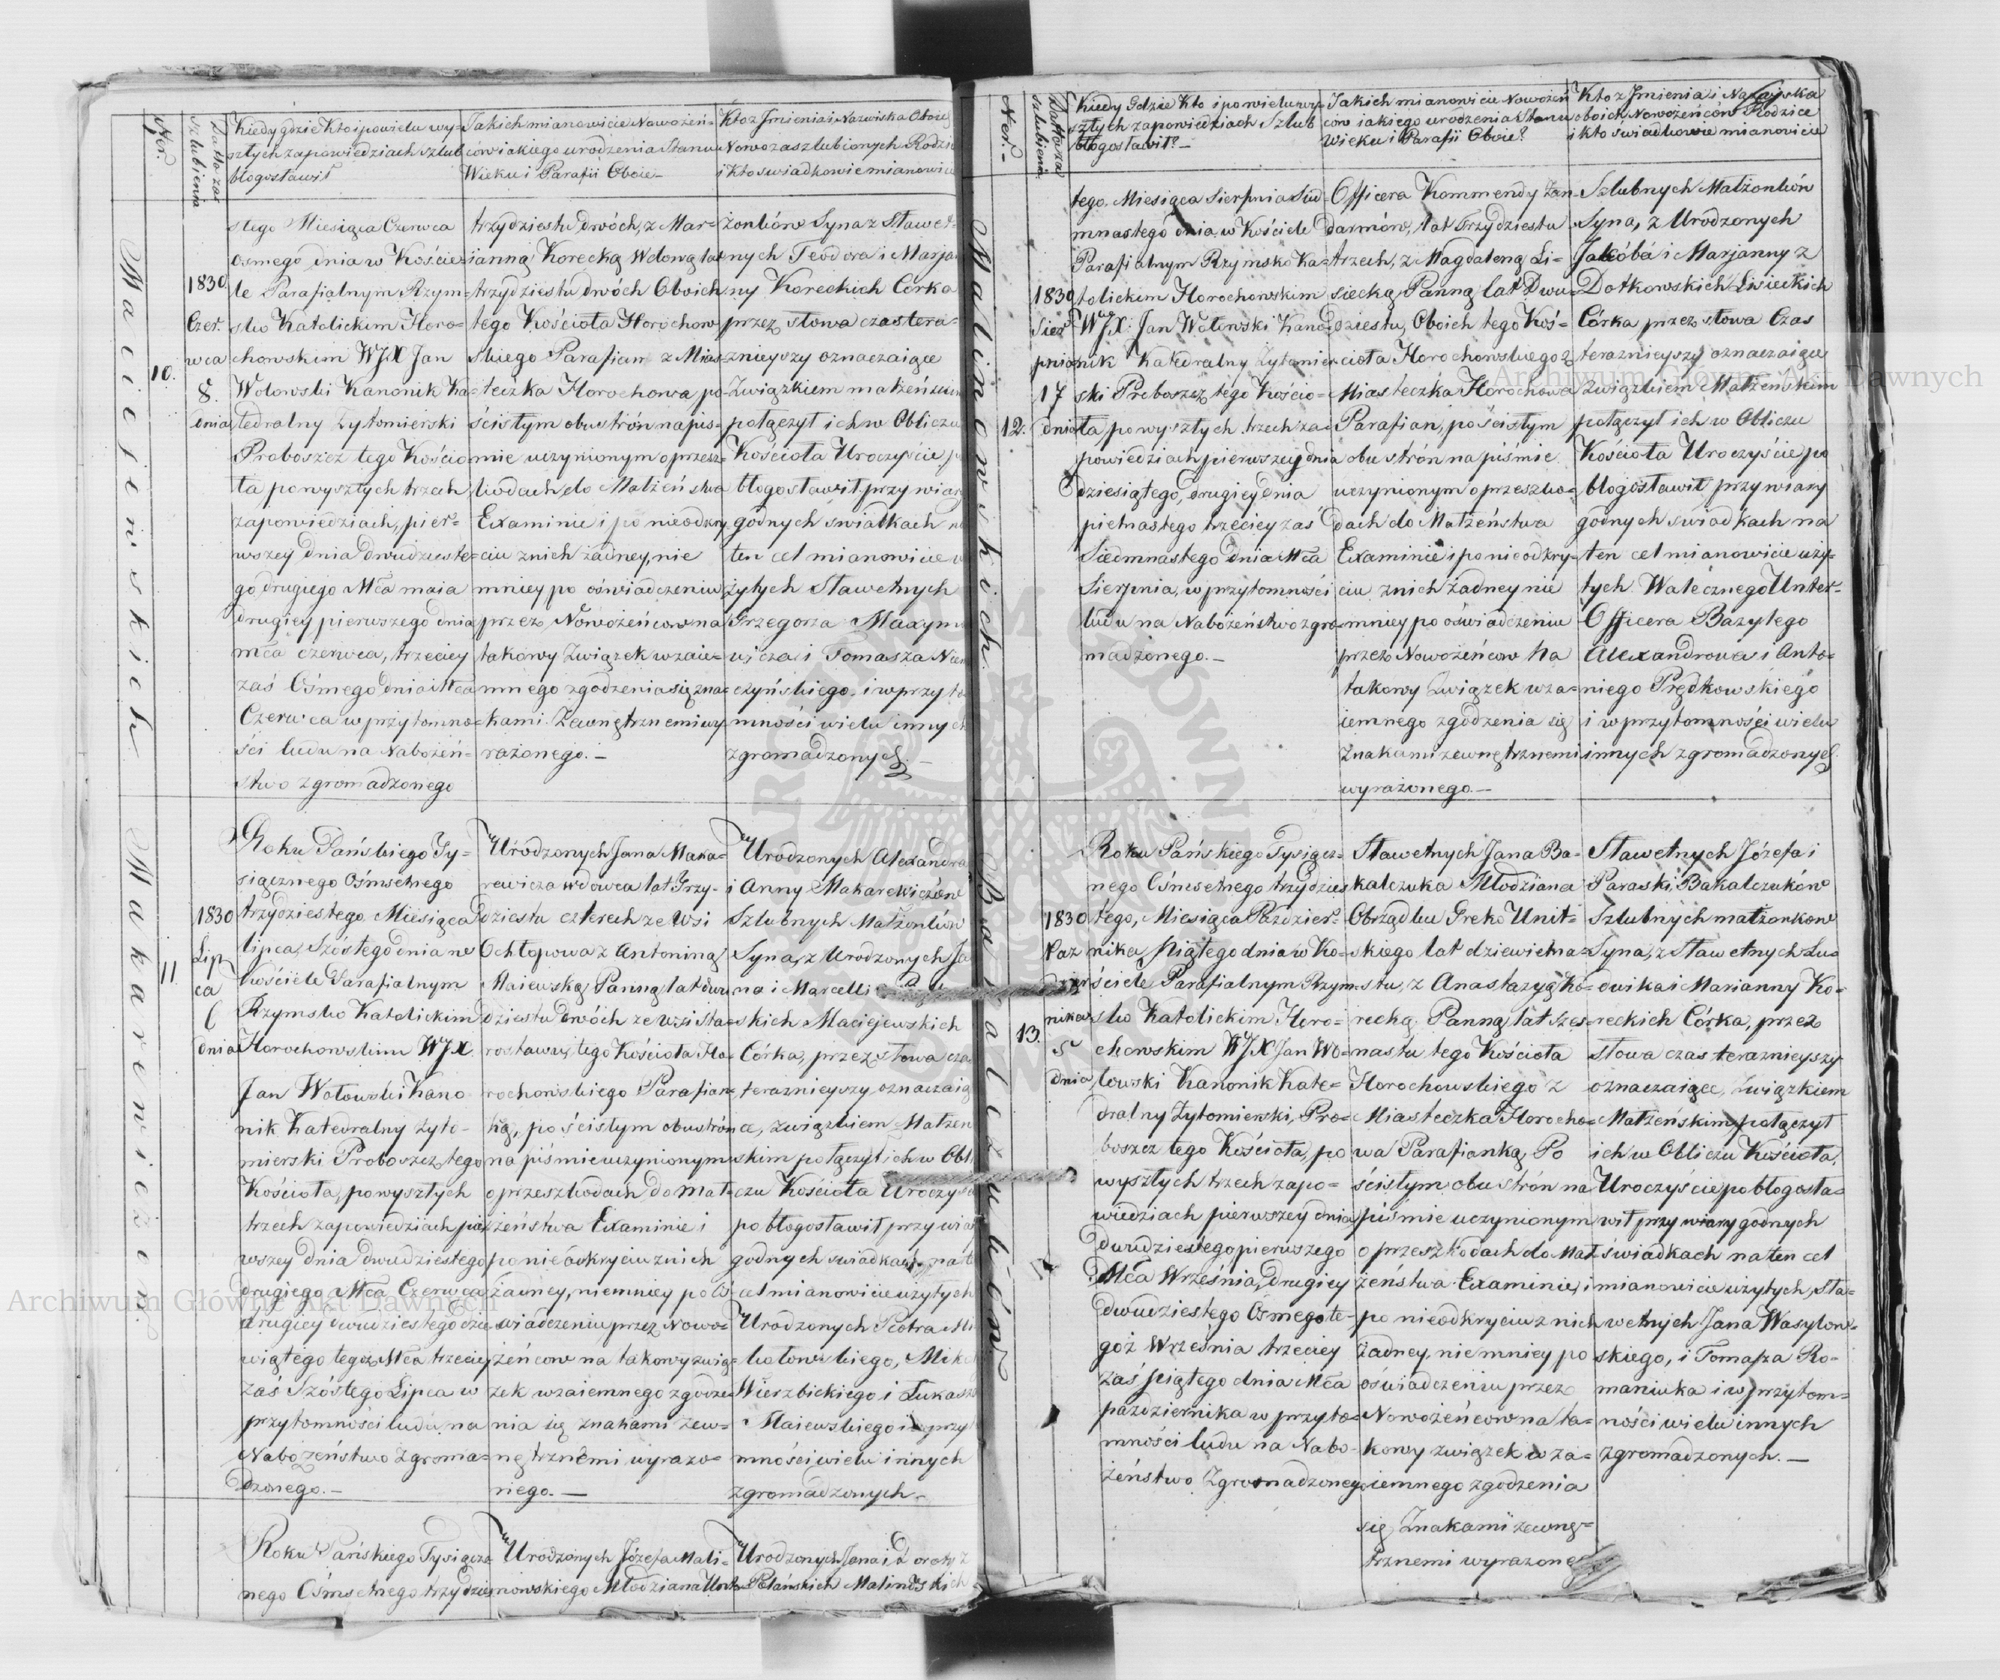 Ner.
Datta za
szlubienia
Kiedy gdzie Kto i po wielu wy=
szłych zapowiedziach szlub
błogosławił
Jakich mianowicie Nowożeń=
ców iakiego urodzenia Stanu
Wieku i Parafii Oboie
Kto z Jmienia i Nazwiska Oboiey
Nowozaszlubionych Rodzi
i Kto swiadkowie mianowicie
Maiejewskich
10.
1830
Czer.
wca
8.
dnia
stego Miesiąca Czerwca
osmego dnia w Koście=
le Parafialnym Rzym=
sko Katolickim Horo=
chowskim WJX Jan
Wołowski Kanonik Ka=
tedralny Żytomierski
Proboszcz tego Kościo
ła po wyszłych trzech
zapowiedziach, pier=
wszey dnia dwudzieste=
go drugiego Mca maia
drugiey pierwszego dnia
mca czerwca, trzeciey
zaś Ośmego dnia Mca
Czerwca w przytomno=
ści ludu na Nabożeń=
stwo zgromadzonego
trzydziestu dwóch, z Mar=
ianną Korecką Wdową lat
trzydziestu dwóch Oboich
tego Kościoła Horochow
skiego Parafian z Mias
teczka Horochowa po
ścisłym obustrón na pis=
mie uczynionym o przesz=
kodach do Małżeństwa
Examinie i po nieodkry
ciu z nich żadney, nie
mniey po oświadczeniu
przez Nowożeńców na
takowy Związek wzaie=
mnego zgodzenia się zna=
kami Zewnętrznemi wy
rażonego.—
żonków Syna z Sławet=
nych Teodora i Marja
ny Koreckich Córka
przez słowa czas tera=
znieyszy oznaczaiące
Związkiem małżeńskim
połączył ich w Obliczu
Kościoła Uroczyście, p
błogosławił przy wiary
godnych swiadkach na
ten cel mianowicie u
żytych Sławetnych
Grzegorza Maxym
wicza i Tomasza Niem
czyńskiego. i w przyto
mności wielu innych
zgromadzonych.—
Makarewiczów
11
1830
Lip
ca
6
dnia
Roku Pańskiego Ty=
siącznego Ośmsetnego
trzydziestego Miesiąca
lipca, Szóstego dnia w
Kościele Parafialnym
Rzymsko Katolickim
Horochowskim WJX.
Jan Wołowski Kano
nik Katedralny Żyto=
mierski Proboszcz tego
Kościoła, po wyszłych
trzech zapowiedziach pier
wszey dnia dwudziestego
drugiego Mca Czerwca
drugiey dwudziestego dzie
wiątego tegoż Mca trzeciey
zaś Szóstego Lipca w
przytomności ludu na
Nabożeństwo Zgroma=
dzonego.—
Urodzonych Jana Maka=
rewicza wdowca lat Trzy=
dziestu czterech ze wsi
Ochłopowa z Antoniną
Maiewską Panną lat dwu
dziestu dwóch ze wsi Sta=
rostawu, tego Kościoła Ho
rochowskiego Parafian=
ką, po ścisłym obustrón
na piśmie uczynionym
o przeszkodach do mał=
żeństwa Examinie i
po nieodkryciu z nich
żadney, niemniey po o
świadczeniu przez Nowo=
żeńców na takowy zwią
zek wzaiemnego zgodze=
nia się znakami zew=
nętrznemi wyrażo=
nego.—
Urodzonych Alexandra
i Anny Makarewiczów
Szlubnych Małżonków
Syna, z Urodzonych Ja
na i Marcelli
skich Maciejewskich
Córka, przez słowa cza
teraznieyszy oznaczaią
ce, związkiem Małżeń
skim połączył ich w Obli
czu Kościoła Uroczyście
pobłogosławił przy wia
godnych swiadkach na t
cel mianowicie użytych
Urodzonych Piotra Mi
kołowskiego, Mik
Wierzbickiego i Łukasza
Maiewskiego i w przy
mności wielu innych
zgromadzonych.—
Roku Pańskiego Tysiącz
nego Ośmsetnego trzydzie
Urodzonych Józefa Mali=
nowskiego Młodziana Unter
Urodzonych Jana i Doroty z
Polańskich Malinowskich
Malinowskich
Bakalczuków
Ner.—
Datta za
szlubienia
Kiedy Gdzie Kto i po wielu wy=
szłych zapowiedziach Szlub
błogosławił?—
Jakich mianowicie Nowożeń
ców iakiego urodzenia Stanu
Wieku i Parafii Oboie?
Kto z Jmienia i Nazwiska
oboich Nowożeńców Rodzice
i kto swiadkowie mianowicie
12.
1830
Sier
pnia
17
dnia
tego. Miesiąca Sierpnia Sied=
mnastego dnia w Kościele
Parafialnym Rzymsko Ka=
tolickim Horochowskim
WJX: Jan Wołowski Kano
nik Katedralny Żytomier
ski Proboszcz tego Kościo=
ła, po wyszłych trzech za=
powiedziach pierwszey dnia
dziesiątego, drugiey dnia
pietnastego trzeciey zaś
Siedmnastego dnia Mca
Sierpnia, w przytomności
ludu na Nabożeństwo zgro=
madzonego.—
Officera Kommendy Żan=
darmów, lat Trzydziestu
trzech, z Magdaleną Li=
siecką Panną lat Dwu=
dziestu, Oboich tego Koś=
cioła Horochowskiego z
Miasteczka Horochowa
Parafian, po ścisłym
obustrón na piśmie
uczynionym o przeszko=
dach do Małżeństwa
Examinie i po nieodkry=
ciu z nich żadney nie
mniey po oświadczeniu
przez Nowożeńców na
takowy Związek wza=
iemnego zgodzenia się
Znakami zewnętrznemi
wyrażonego.—
Szlubnych Małżonków
Syna, z Urodzonych
Jakóba i Marjanny z
Dołkowskich Lisieckich
Córka przez słowa Czas
teraznieyszy oznaczaiące
związkiem Małżeńskim
połączył ich w Obliczu
Kościoła Uroczyście po
błogosławił przy wiary
godnych swiadkach na
ten cel mianowicie uży=
tych Walecznego Unter=
Officera Bazylego
Alexandrowa i Anto=
niego Prędkowskiego
i w przytomności wielu
innych zgromadzonych
13.
1830
Paz
dzier
nika
5
dnia
Roku Pańskiego Tysiącz=
nego Ośmsetnego trzydzies
tego, Miesiąca Paździer=
nika, Piątego dnia w Ko=
ściele Parafialnym Rzym=
sko Katolickim Horo=
chowskim WJX Jan Wo=
łowski Kanonik Kate=
dralny Żytomierski, Pro=
boszcz tego Kościoła, po
wyszłych trzech zapo=
wiedziach pierwszey dnia
dwudziestego pierwszego
Mca Września, drugiey
dwudziestego Ósmego te=
goż Września trzeciey
zaś piątego dnia Mca
października w przyto=
mności ludu na Nabo=
żeństwo Zgromadzonego
Sławetnych Jana Ba=
kalczuka Młodziana
Obrządku Greko Unit=
skiego lat dziewietna=
stu, z Anastazyą Ko=
recką Panną lat szes=
nastu tego Kościoła
Horochowskiego z
Miasteczka Horocho=
wa Parafianką, Po
ścisłym obustrón na
piśmie uczynionym
o przeszkodach do Mał
żeństwa Examinie, i
po nieodkryciu z nich
żadney, niemniey po
oświadczeniu przez
Nowożeńców na ta=
kowy związek wza=
iemnego zgodzenia
się Znakami zewnę=
trznemi wyrażone
Sławetnych Józefa i
Paraski Bakalczuków
Szlubnych małżonków
Syna, z Sławetnych Lu=
dwika i Marianny Ko=
reckich Córka, przez
słowa czas teraznieyszy
oznaczaiące, związkiem
Małżeńskim połączył
ich w Obliczu Kościoła,
Uroczyście pobłogosła=
wił przy wiary godnych
świadkach na ten cel
mianowicie użytych, Sła=
wetnych Jana Wasylow=
skiego, i Tomasza Ro=
maniuka i w przytom=
ności wielu innych
zgromadzonych.—
Archiwum Główne Akt Dawnych
Archiwum Główne Akt Dawnych